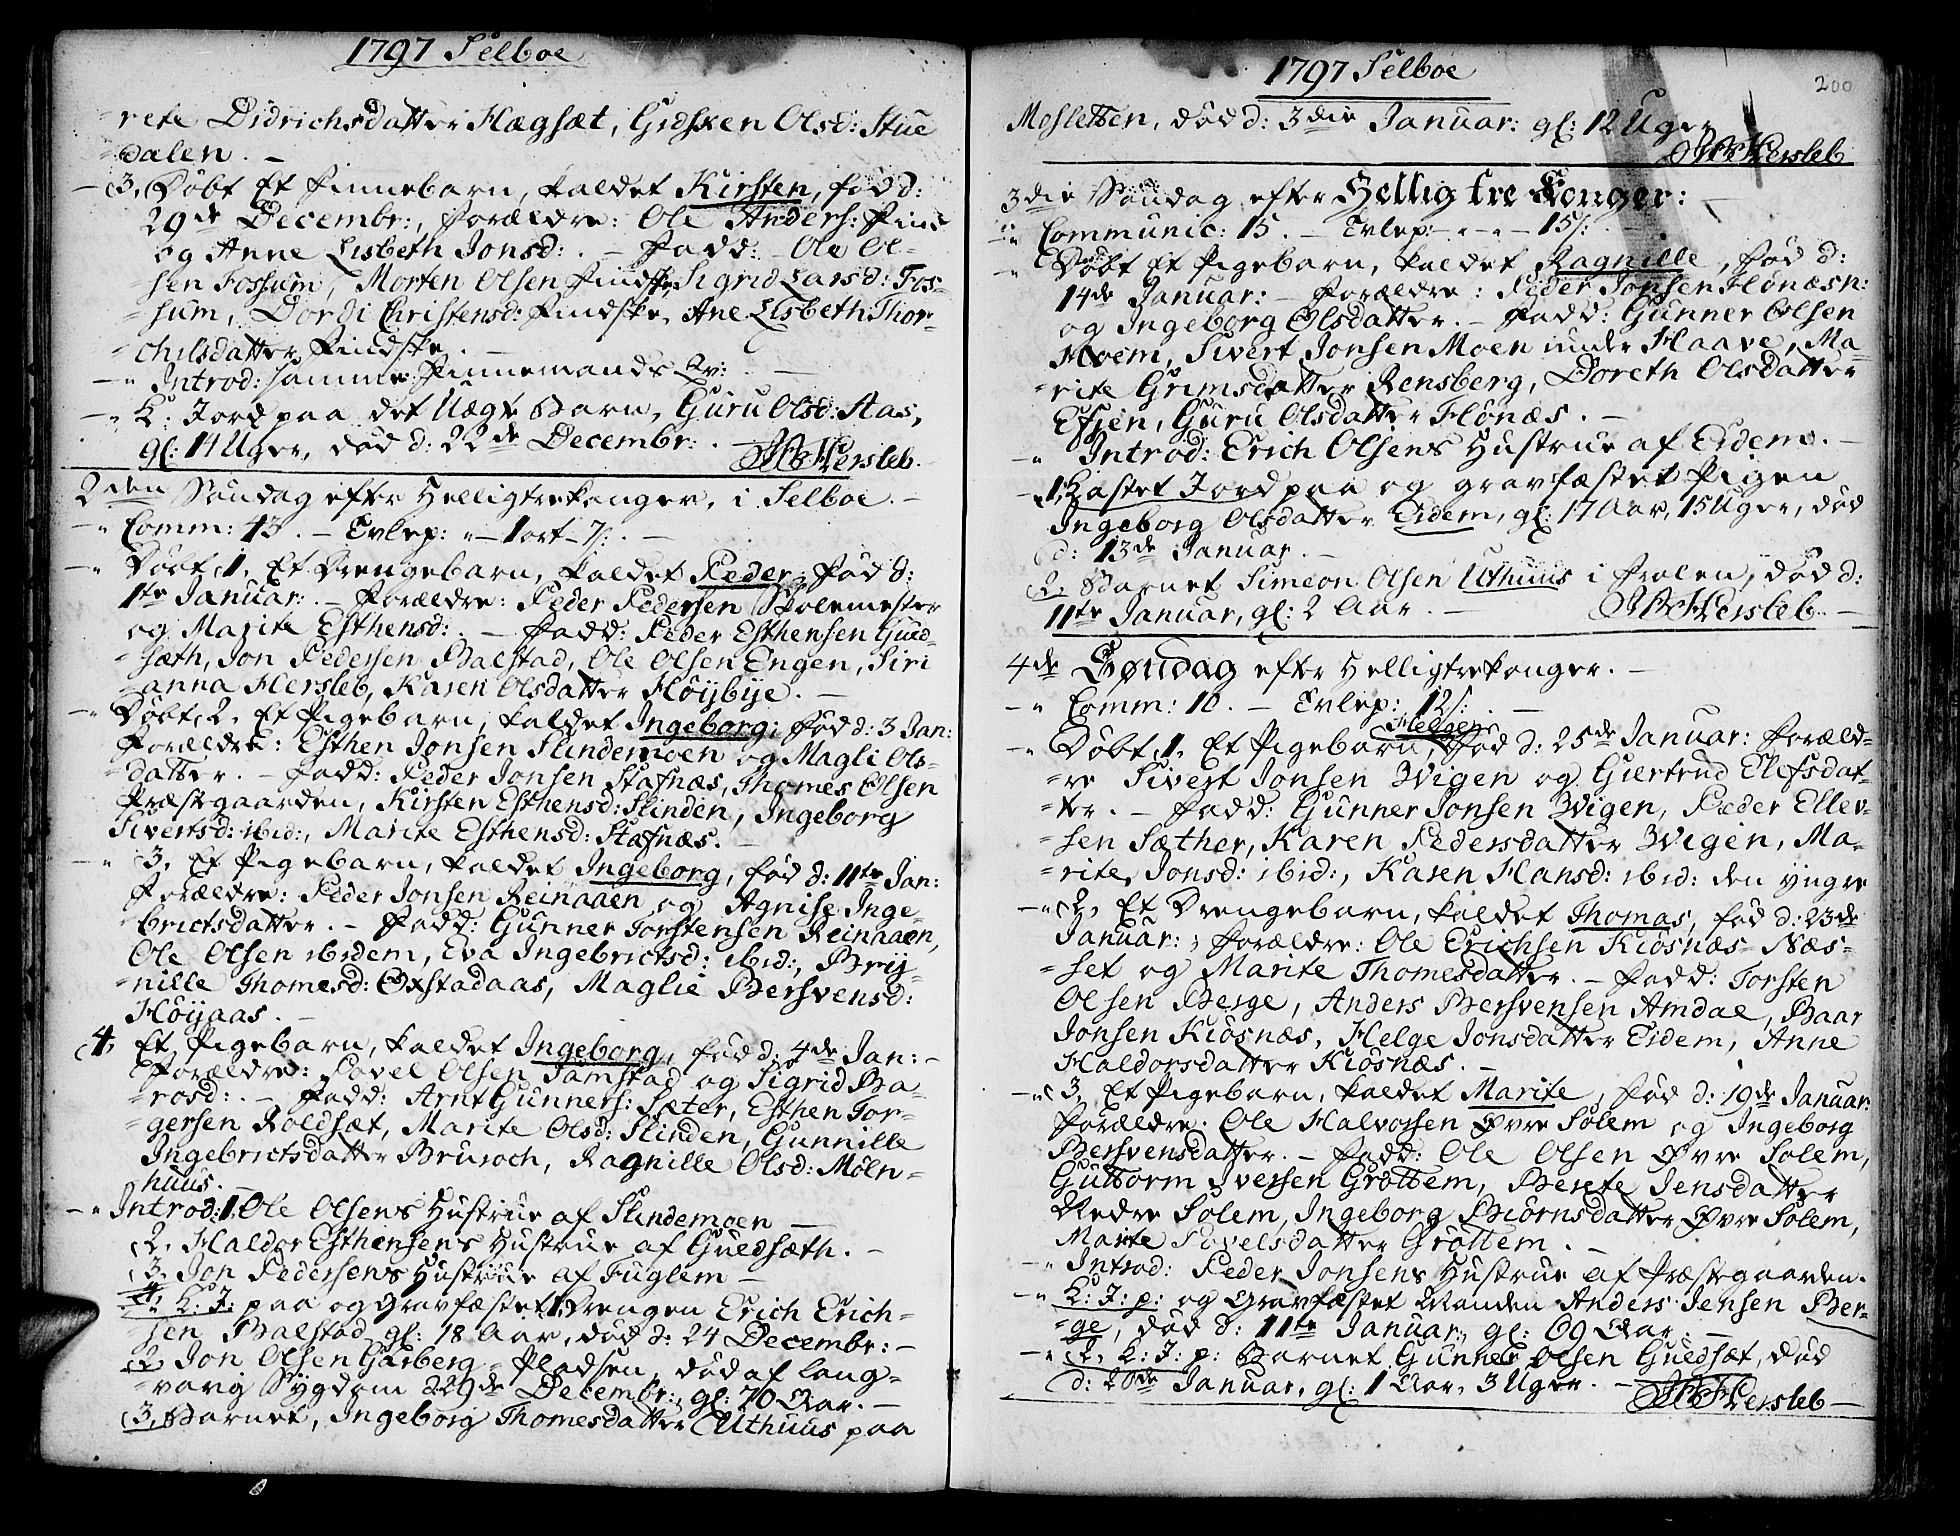 1797 Selboe
rete Didrichsdatter Hægsæt, Gidsken Olsd: Stue
dalen. -
3, Døbt Et Finnebarn, kaldet Kirsten, fød d:
29de Decembr:, Forældre: Ole Anders: Find
og Anne Lisbeth Jonsd: . - Fadd: Ole Ol-
sen Fossum, Morten Olsen Findske, Sigrid Larsd: Fos-
sum, Dordi Christensd: Findske, Ane Lisbeth Thor-
chilsdatter Findske. -
Introd: samme Finnemands Qv: -
K: Jord paa det Uægte Barn, Guru Olsd: Aas,
gl: 14 Uger, død d: 22de Decembr: . - Hersleb.
2den Søndag efter Helligtrekonger, i Selboe. -
Comm: 43. - Evlep: " - 1 ort - 7/: . -
Døbt 1, Et Drengebarn, kaldet Peder, fød d:
1te Januar: . - Forældre: Peder Pedersen Skolemester
og Marite Esthensd: . - Fadd: Peder Esthensen Gued-
sæth, Jon Pedersen Balstad, Ole Olsen Engen, Siri
anna Hersleb, Karen Olsdatter Höÿbÿe. -
Døbt 2, Et Pigebarn, kaldet Ingeborg, fød d: 3 Jan:
Forældre: Esthen Jonsen Slindemoen og Magli Ols-
datter. - Fadd: Peder Jonsen Stafnæs, Thomes Olsen
Præstegaarden, Kirsten Esthensd: Slinden, Ingeborg
Sivertsd: ibid:, Marite Esthensd: Stafnæs. -
3, Et Pigebarn, kaldet Ingeborg, fød d: 11te Jan:
Forældre: Peder Jonsen Reinaaen og Agnise Inge-
brictsdatter. - Fadd: Gunner Torstensen Reinaaen,
Ole Olsen ibidem, Eva Ingebrictsd: ibid:, Brÿ-
nille Thomesd: Oxstadaas, Maglie Bersvensd:
Höÿaas. -
4, Et Pigebarn, kaldet Ingeborg, fød d: 4de Jan: -
Forældre: Povel Olsen Samstad og Sigrid Ba-
rosd: . - Fadd: Arnt Gunners: Sæter, Esthen Tor-
gersen Roldsæt, Marite Olsd: Slinden, Gunnille
Ingebrictsdatter Brusoch, Ragnille Olsd: Möln-
huus. -
Introd: 1, Ole Olsens Hustrue af Slindemoen -
2, Haldor Esthensens Hustrue af Guedsæth. -
3, Jon Pedersens Hustrue af Fuglem -
K: J: paa og Gravfæstet 1, Drengen Erich Erich-
sen Balstad, gl: 18 Aar, død d: 24 Decembr: -
2, Jon Olsen Garberg-Pladsen, død af lang-
varig Sÿgdom 29de Decembr:, gl: 70 Aar. -
3, Barnet, Ingeborg Thomesdatter Uthuus paa
1797 Selboe
200
Mosletten, død d: 3die Januar: gl: 12 Uger
Hersleb
3die Søndag efter Hellig tre Konger: -
Communic: 15. - Evlep: - " - " - 15/: . -
Døbt Et Pigebarn, kaldet Ragnille, fød d:
14de Januar: - Forældre: Peder Jonsen Flönæsn:
og Ingeborg Olsdatter. - Fadd: Gunner Olsen
Moem, Sivert Jonsen Moen under Haave, Ma-
rite Grimsdatter Rensberg, Doreth Olsdatter
Efjen, Guru Olsdatter Flönæs. -
Introd: Erich Olsens Hustrue af Eidem. -
1, Kastet Jord paa og gravfæstet Pigen
Ingeborg Olsdatter Eidem, gl: 17 Aar, 15 Uger, død
d: 13de Januar. -
2, Barnet Simeon Olsen Uthuus i Frolen, død d:
11te Januar, gl: 2 Aar. - Hersleb. -
4de Søndag efter Helligtrekonger. -
Comm: 10. - Evlep: 12/: . -
Helgen
Døbt 1, Et Pigebarn, fød d: 25de Januar: Foræld-
re Sivert Jonsen Zvigen og Giertrud Elefsdat-
ter. - Fadd: Gunner Jonsen Zvigen, Peder Ellev-
sen Sæther, Karen Pedersdatter Zvigen, Ma-
rite Jonsd: ibid:, Karen Hansd: ibid: den yngre
2, Et Drengebarn, kaldet Thomas, fød d: 23de
Januar: ; Forældre: Ole Erichsen Kiösnæs-Næs-
set og Marite Thomesdatter. - Fadd: Torsten
Olsen Berge, Anders Bersvensen Amdal, Baar
Jonsen Kiösnæs, Helge Jonsdatter Eidem, Anne
Haldorsdatter Kiösnæs. -
3, Et Pigebarn, kaldet Marite, fød d: 19de Januar:
Forældre: Ole Halvorsen Øvre Solem og Ingeborg
Bersvensdatter. - Fadd: Ole Olsen Øvre Solem,
Guttorm Iversen Gröttem, Berete Jensdatter
Nedre Solem, Ingeborg Biörnsdatter Øvre Solem,
Marite Povelsdatter Gröttem. -
Introd: Peder Jonsens Hustrue af Præstegaarden.
K: J: p: og Gravfæstet Manden Anders Jensen Ber-
ge, død d: 11te Januar, gl: 69 Aar. -
2, K: J: p: Barnet Gunner Olsen Guedsæt, død
d: 20de Januar, gl: 1 Aar, 3 Uger. - Hersleb -